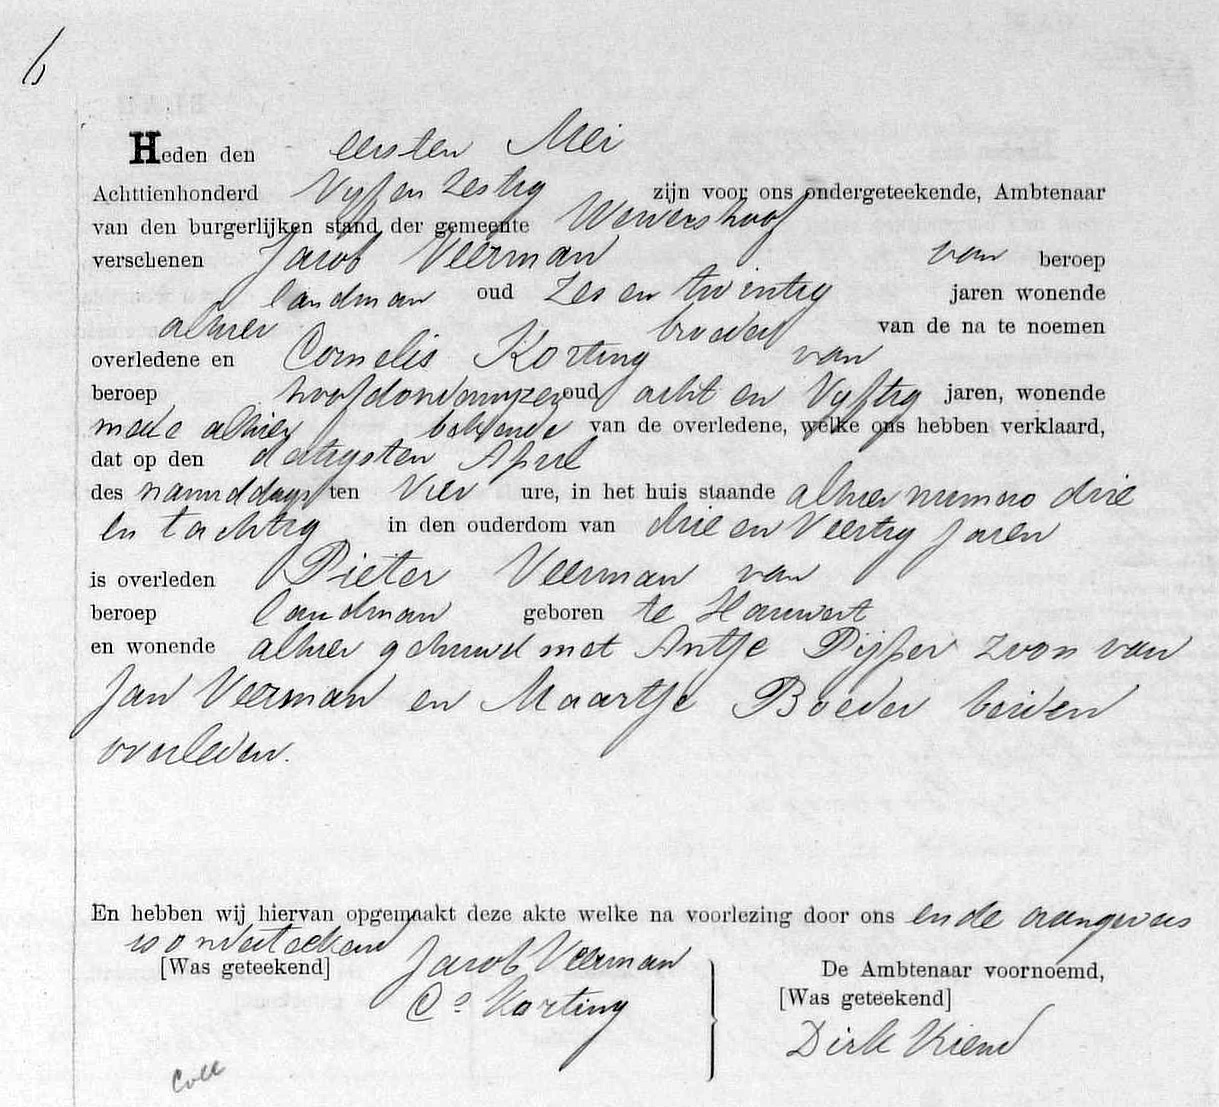 6
Heden den eersten Mei
Achttienhonderd Vyf en Zestig zijn voor ons ondergeteekende, Ambtenaar
van den burgerlijken stand der gemeente Wervershoof
verschenen Jacob Veerman van beroep
landman oud Zes en twintig jaren wonende
alhier broeder van de na te noemen
overledene en Cornelis Korting van
beroep hoofdonderwyzer oud acht en Vyftig jaren, wonende
mede alhier bekende van de overledene, welke ons hebben verklaard,
dat op den dertigsten April
des namiddags ten Vier ure, in het huis staande alhier numero drie
en tachtig in den ouderdom van drie en Veertig jaren
is overleden Pieter Veerman van
beroep landman geboren te Hauwert
en wonende alhier gehuwd met Antje Pijper zoon van
Jan Veerman en Maartje Boeder beiden
overleden.
En hebben wij hiervan opgemaakt deze akte welke na voorlezing door ons en de aangevers
is onderteekend
[Was geteekend] Jacob Veerman De Ambtenaar voornoemd,
Cs Korting [Was geteekend]
Dirk Kiend
Coll